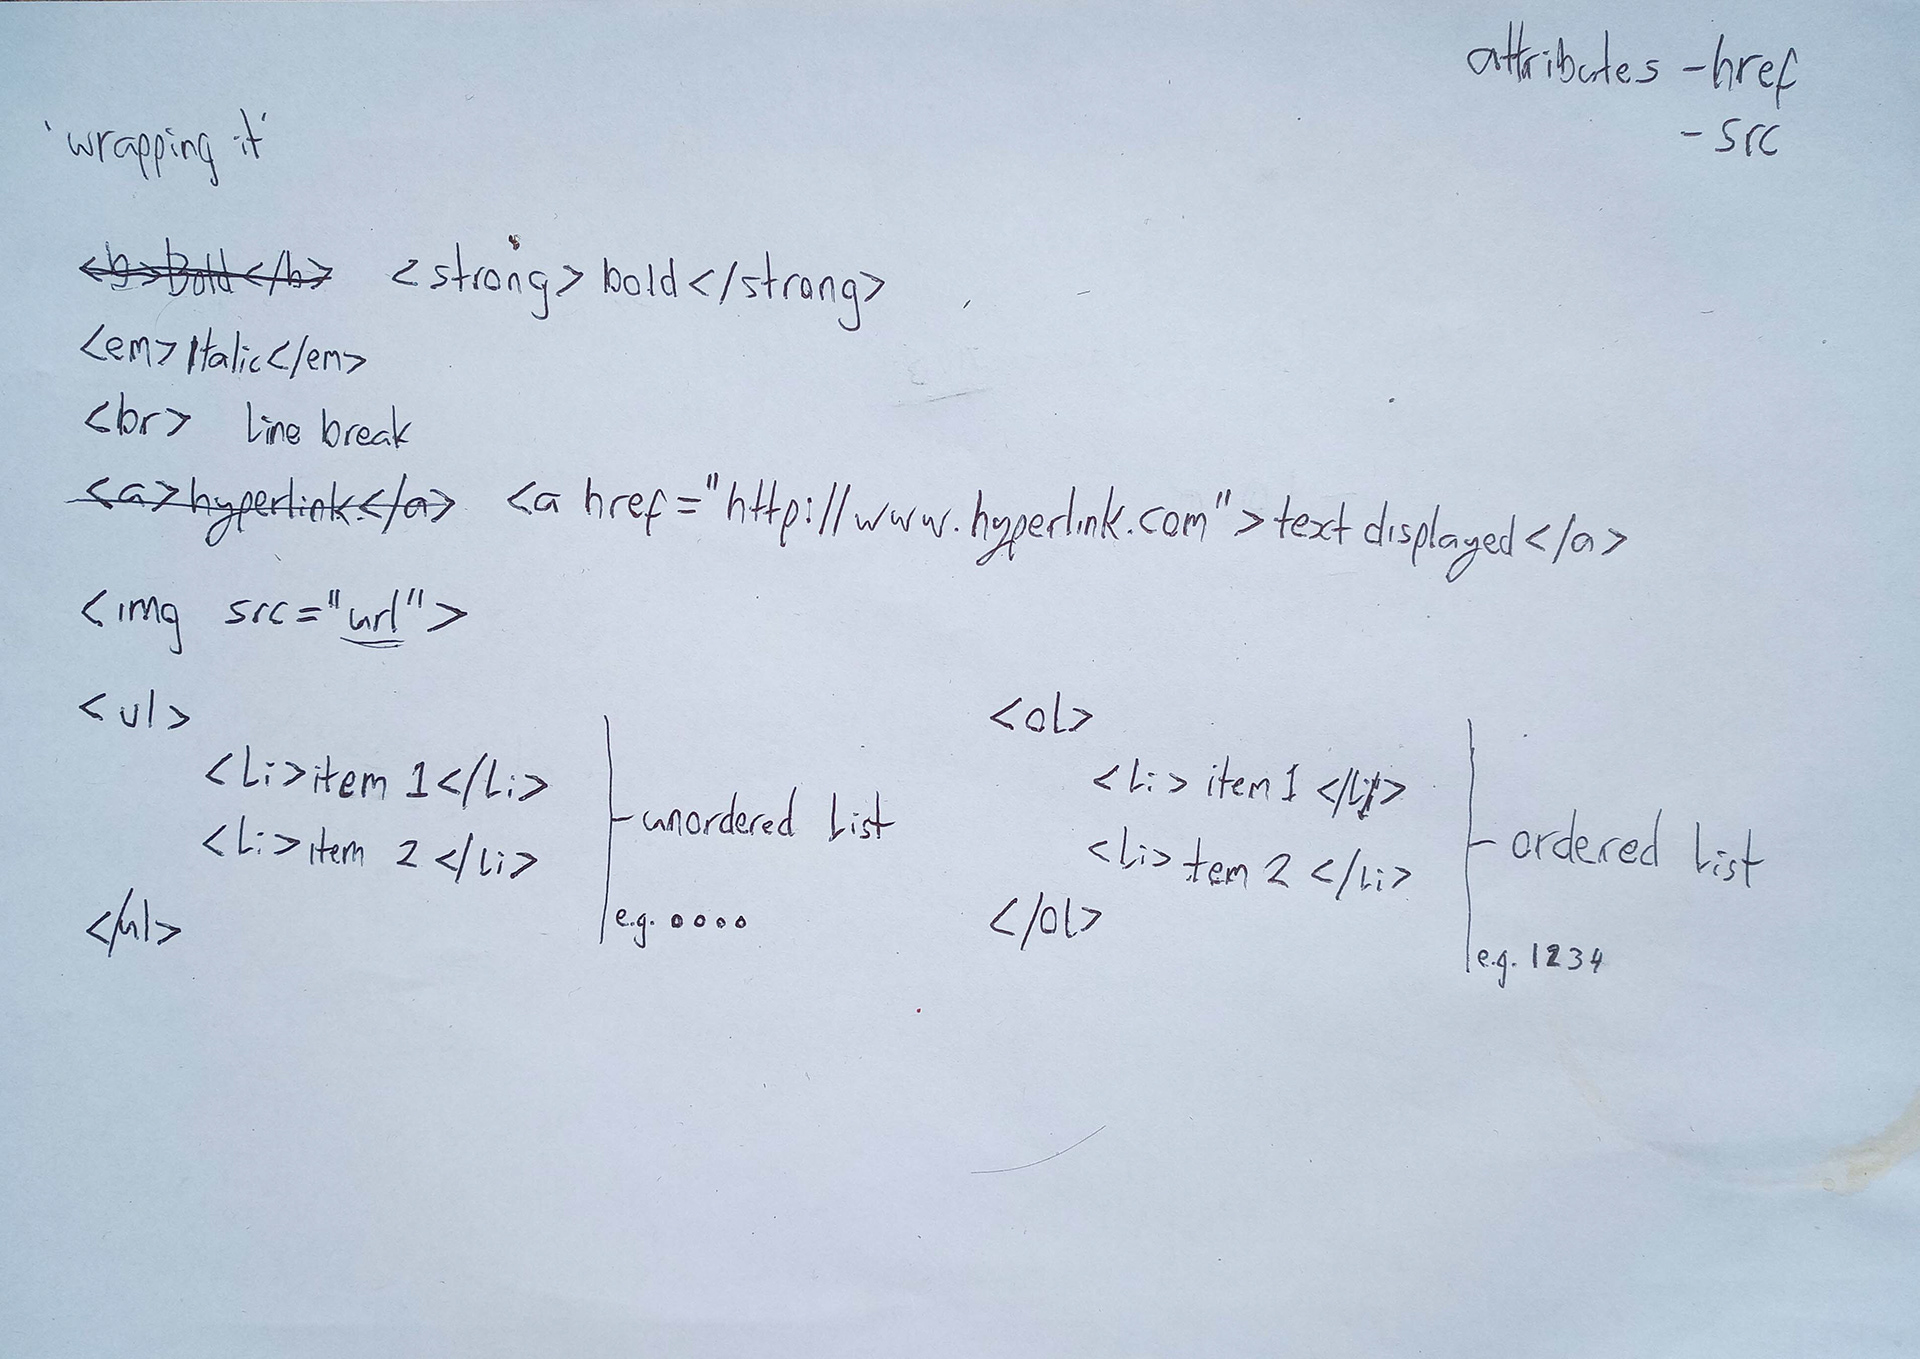 attributes -href
- src
'wrapping it'
<b>Bold</b> <strong>bold</strong>
<em>Italic</em>
<br> Line break
<a>hyperlink</a> <a href="http://www.hyperlink.com">text displayed</a>
<img src="url">
<ul>
<li>item 1</li>
<li>item 2</li>
</ul>
unordered list
e.g. o o o o
<ol>
<li>item 1</li>
<li>tem 2</li>
</ol>
ordered list
e.g. 1 2 3 4